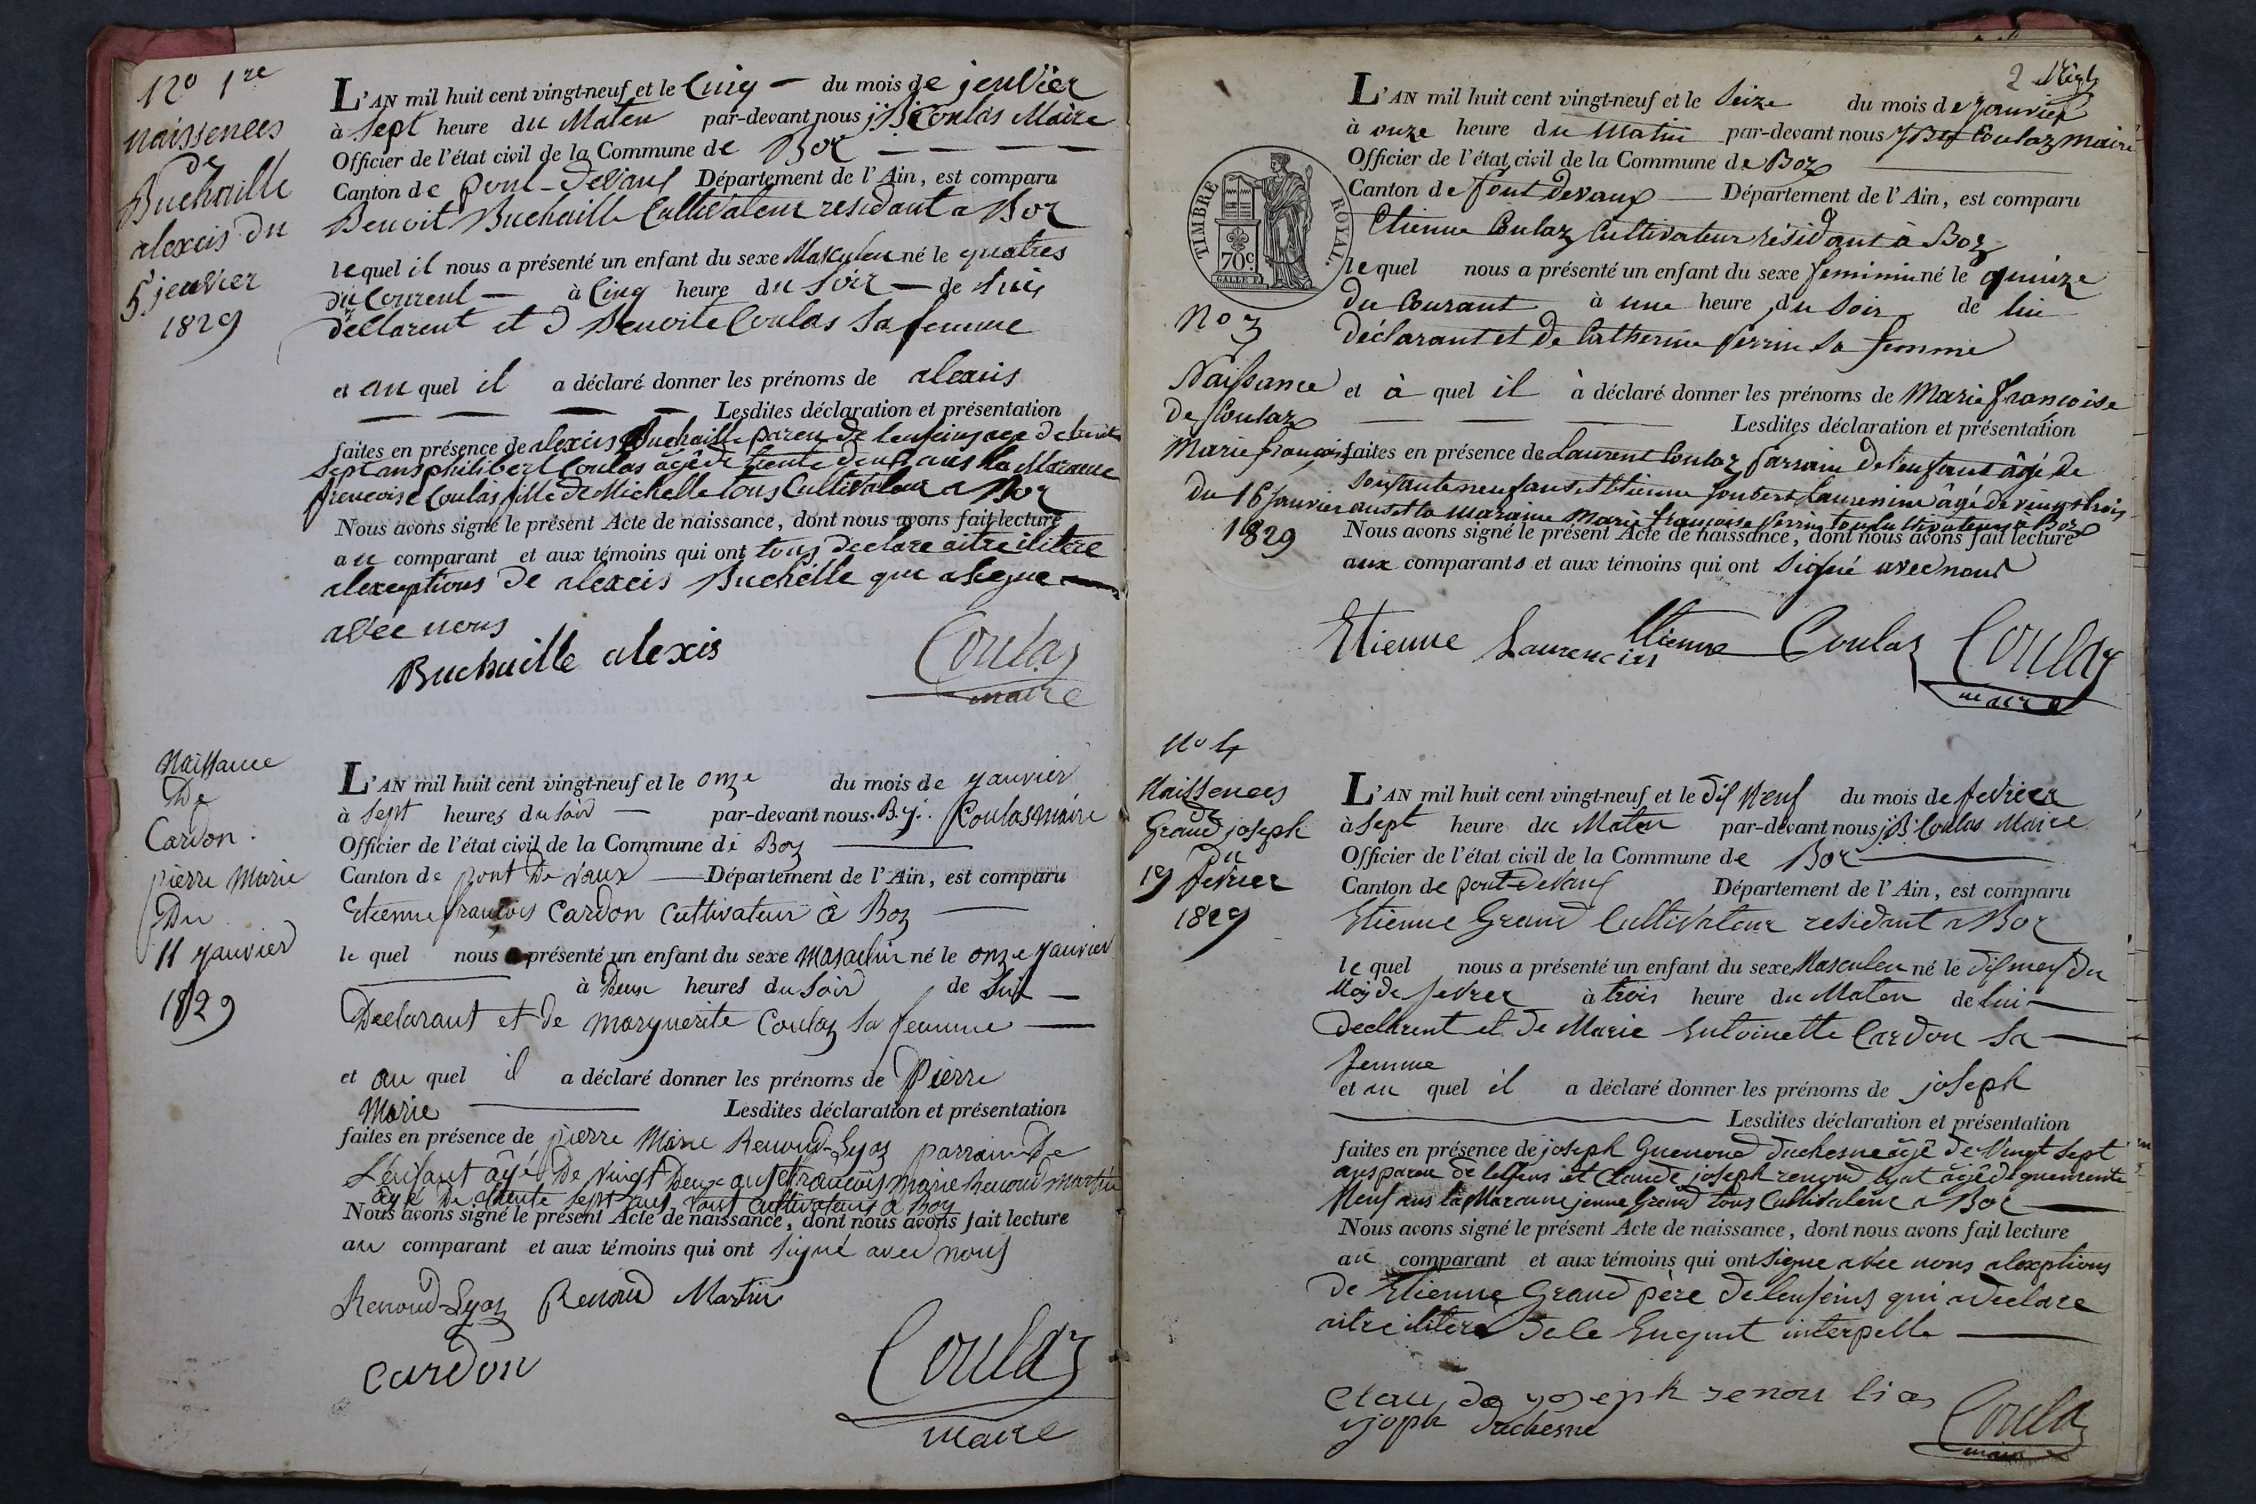 No 1re
naissences
de
Buchaille
alexcis du
5 jenvier
1829
L'AN mil huit cent vingt-neuf et le Cinq du mois de jenvier
à sept heure du Maten par-devant nous j B Coulas Maire
Officier de l'état civil de la Commune de Boz
Canton de pont-devaux Département de l'Ain, est comparu
Benoit Buchaille Cultivateur residant a Boz
lequel il nous a présenté un enfant du sexe Masculen né le quatres
du Courent à Cinq heure du soir de luis
declarent et d Benoite Coulas sa femme
et au quel il a déclaré donner les prénoms de alexcis
Lesdites déclaration et présentation
faites en présence de alexcis Buchaille paren de lenfeins age de
sept ans philibert Coulas âgé de trente deux ans la Maraene
frencoise Coulas fille de Michelle tous Cultivateur a Boz
Nous avons signé le présent Acte de naissance, dont nous avons fait lecture
au comparant et aux témoins qui ont tous declare aitre ilitere
alexceptions de alexcis Buchélle que a segne
avéc nous
Buchaille alexis
Coulaz
maire
Naissance
De
Cardon
pierre Marie
Du
11 janvier
1829
L'AN mil huit cent vingt-neuf et le onze du mois de janvier
à sept heures du soir par-devant nous B. j. Coulas maire
Officier de l'état civil de la Commune de Boz
Canton de pont De vaux Département de l'Ain, est comparu
Etienne françois Cardon Cultivateur à Boz
le quel nous a présenté un enfant du sexe masculin né le onze janvier
à Deux heures du soir de lui
Declarant et de marguerite Coulaz sa femme
et au quel il a déclaré donner les prénoms de Pierre
Marie Lesdites déclaration et présentation
faites en présence de pierre Marie Renoud-Lyaz parrain de
L'enfant âgé De vingt Deux ans et françois marie Renoud martin
âgé De trente sept ans tous cultivateurs à Boz
Nous avons signé le présent Acte de naissance, dont nous avons fait lecture
au comparant et aux témoins qui ont signé avec nous
Renoud-Lyaz Renoud Martin
cardon
Coulaz
maire
2
L'AN mil huit cent vingt-neuf et le Seize du mois de janvier
à onze heure du matin par-devant nous J Bte Coulaz maire
Officier de l'état civil de la Commune de Boz
Canton de Pont devaux Département de l'Ain, est comparu
Etienne Coulaz Cultivateur résidant à Boz
TIMBRE ROYAL.
70c.
le quel nous a présenté un enfant du sexe feminin né le quinze
du Courant à une heure du soir de lui
déclarant et de Catherine Perrin sa femme
No 3
Naissance
de Coulaz
Marie françoise
du 16 Janvier
1829
et à quel il à déclaré donner les prénoms de Marie françoise
Lesdites déclaration et présentation
faites en présence de Laurent Coulaz Parrain de l'enfant âgé de
soixante neuf ans et Etienne Joubert Laurencin âgé de vingt trois
ans et la maraine Marie françoise Perrin tous Cultivateurs à Boz
Nous avons signé le présent Acte de naissance, dont nous avons fait lecture
aux comparants et aux témoins qui ont signé avec nous
Etienne Laurencin Etienne Coulaz Coulaz
maire
No 4
Naissences
de
Grand joseph
Du
19 fevrier
1829
L'AN mil huit cent vingt-neuf et le dix Neuf du mois de fevrier
à sept heure du Maten par-devant nous j.B. Coulas Maire
Officier de l'état civil de la Commune de Boz
Canton de pont-devaux Département de l'Ain, est comparu
Etienne Grand Cultivateur residant a Boz
le quel nous a présenté un enfant du sexe Masculen né le dix neuf du
Mois de fevrer à trois heure du Maten de lui
declarent et de Marie Entoinette Cardon sa
femme
et au quel il a déclaré donner les prénoms de joseph
Lesdites déclaration et présentation
faites en présence de joseph Guenoud duchesne âgé de Vingt sept
ans paren de lenfens et Claude joseph renoud lyat âgé de quarente
Neuf ans la Maranne jenne Grand tous Cultivateur a Boz
Nous avons signé le présent Acte de naissance, dont nous avons fait lecture
au comparant et aux témoins qui ont signe avéc nous alexptions
de Etienne Grand père de lenfeins qui a declare
aitre ilitere de le Enquit interpelle
Clau de yoseph renou lias
yjoph duchesne
Coulaz
maire